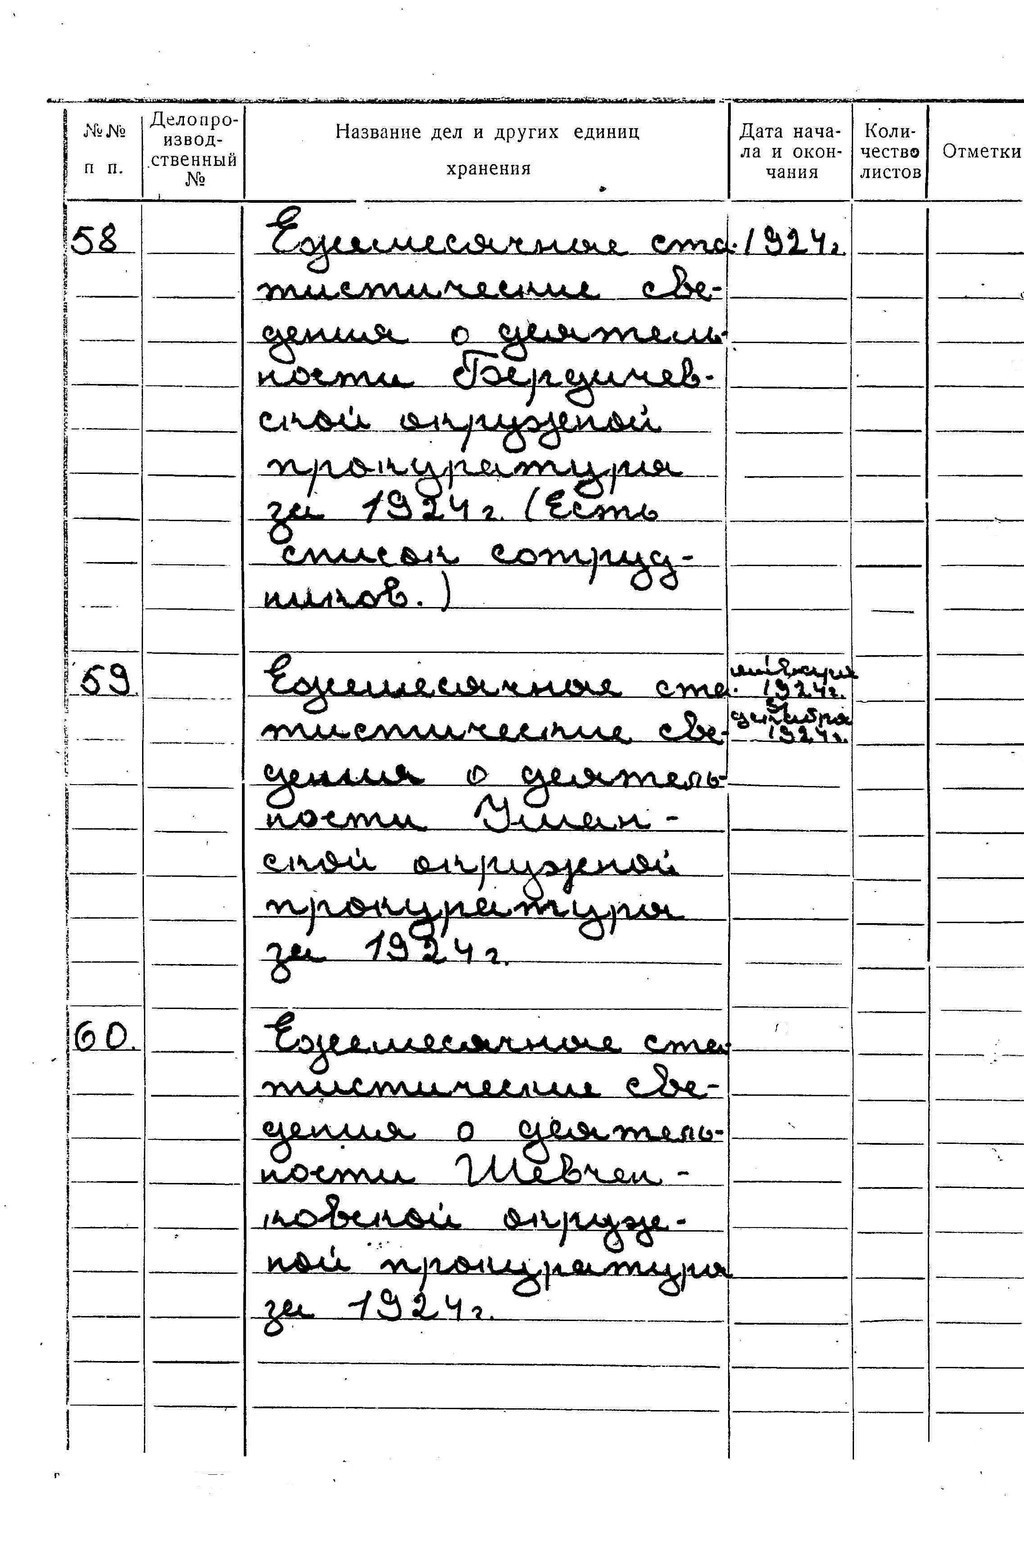 №№ п п.
Делопроизвод-ственный №
Название дел и других единиц хранения
Дата нача-ла и окон-чания
Коли-чество листов
Отметки
58 Ежемесячные ста- 1924г.
тистические све-
дения о деятель-
ности Бердичев-
ской окружной
прокуратуры
за 1924г. (Есть
список сотруд-
ников.)
59 Ежемесячные ста- 1924г.
тистические све- декабря 1924г.
дения о деятель-
ности Уман-
ской окружной
прокуратуры
за 1924г.
60. Ежемесячные ста-
тистические све-
дения о деятель-
ности Шевчен-
ковской окруж-
ной прокуратуры
за 1924г.